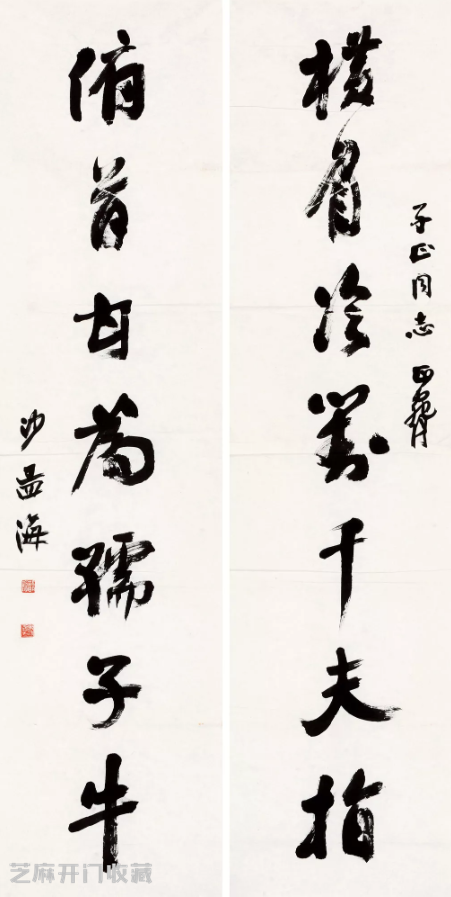 子正同志正
橫眉冷對千夫指
俯首甘爲孺子牛
沙孟海
芝麻开门收藏